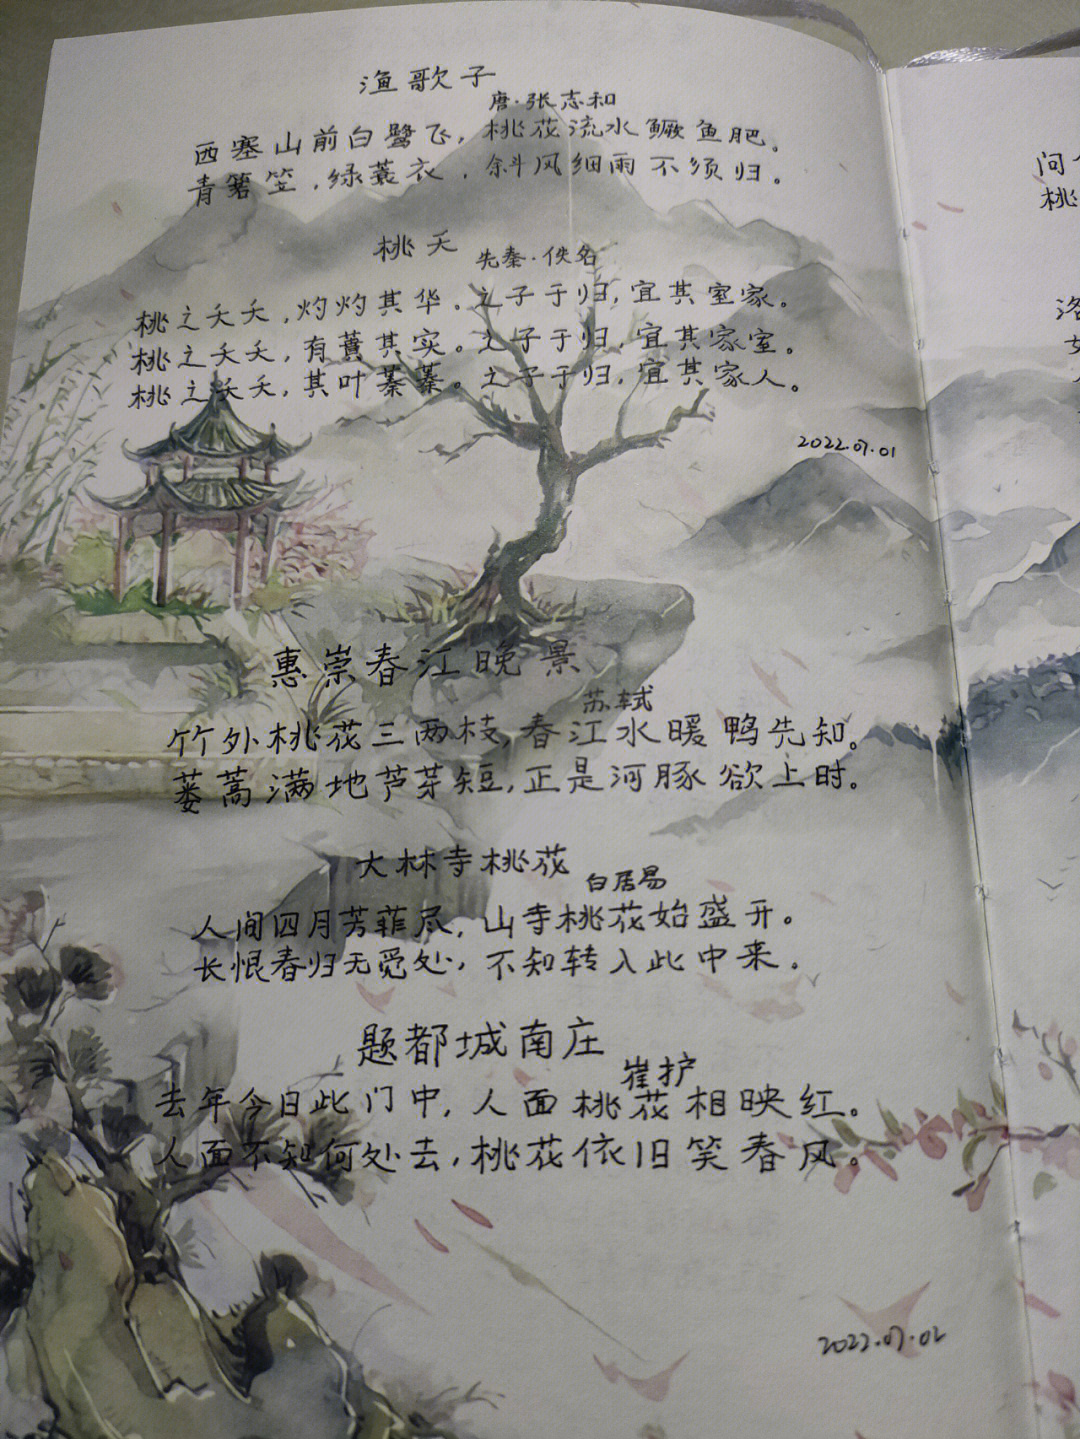 渔歌子
唐·张志和
西塞山前白鹭飞，桃花流水鳜鱼肥。
青箬笠，绿蓑衣，斜风细雨不须归。
桃夭
先秦·佚名
桃之夭夭，灼灼其华。之子于归，宜其室家。
桃之夭夭，有蕡其实。之子于归，宜其家室。
桃之夭夭，其叶蓁蓁。之子于归，宜其家人。
2022.07.01
惠崇春江晚景
苏轼
竹外桃花三两枝，春江水暖鸭先知。
蒌蒿满地芦芽短，正是河豚欲上时。
大林寺桃花
白居易
人间四月芳菲尽，山寺桃花始盛开。
长恨春归无觅处，不知转入此中来。
题都城南庄
崔护
去年今日此门中，人面桃花相映红。
人面不知何处去，桃花依旧笑春风。
2022.07.02
问
桃
洛